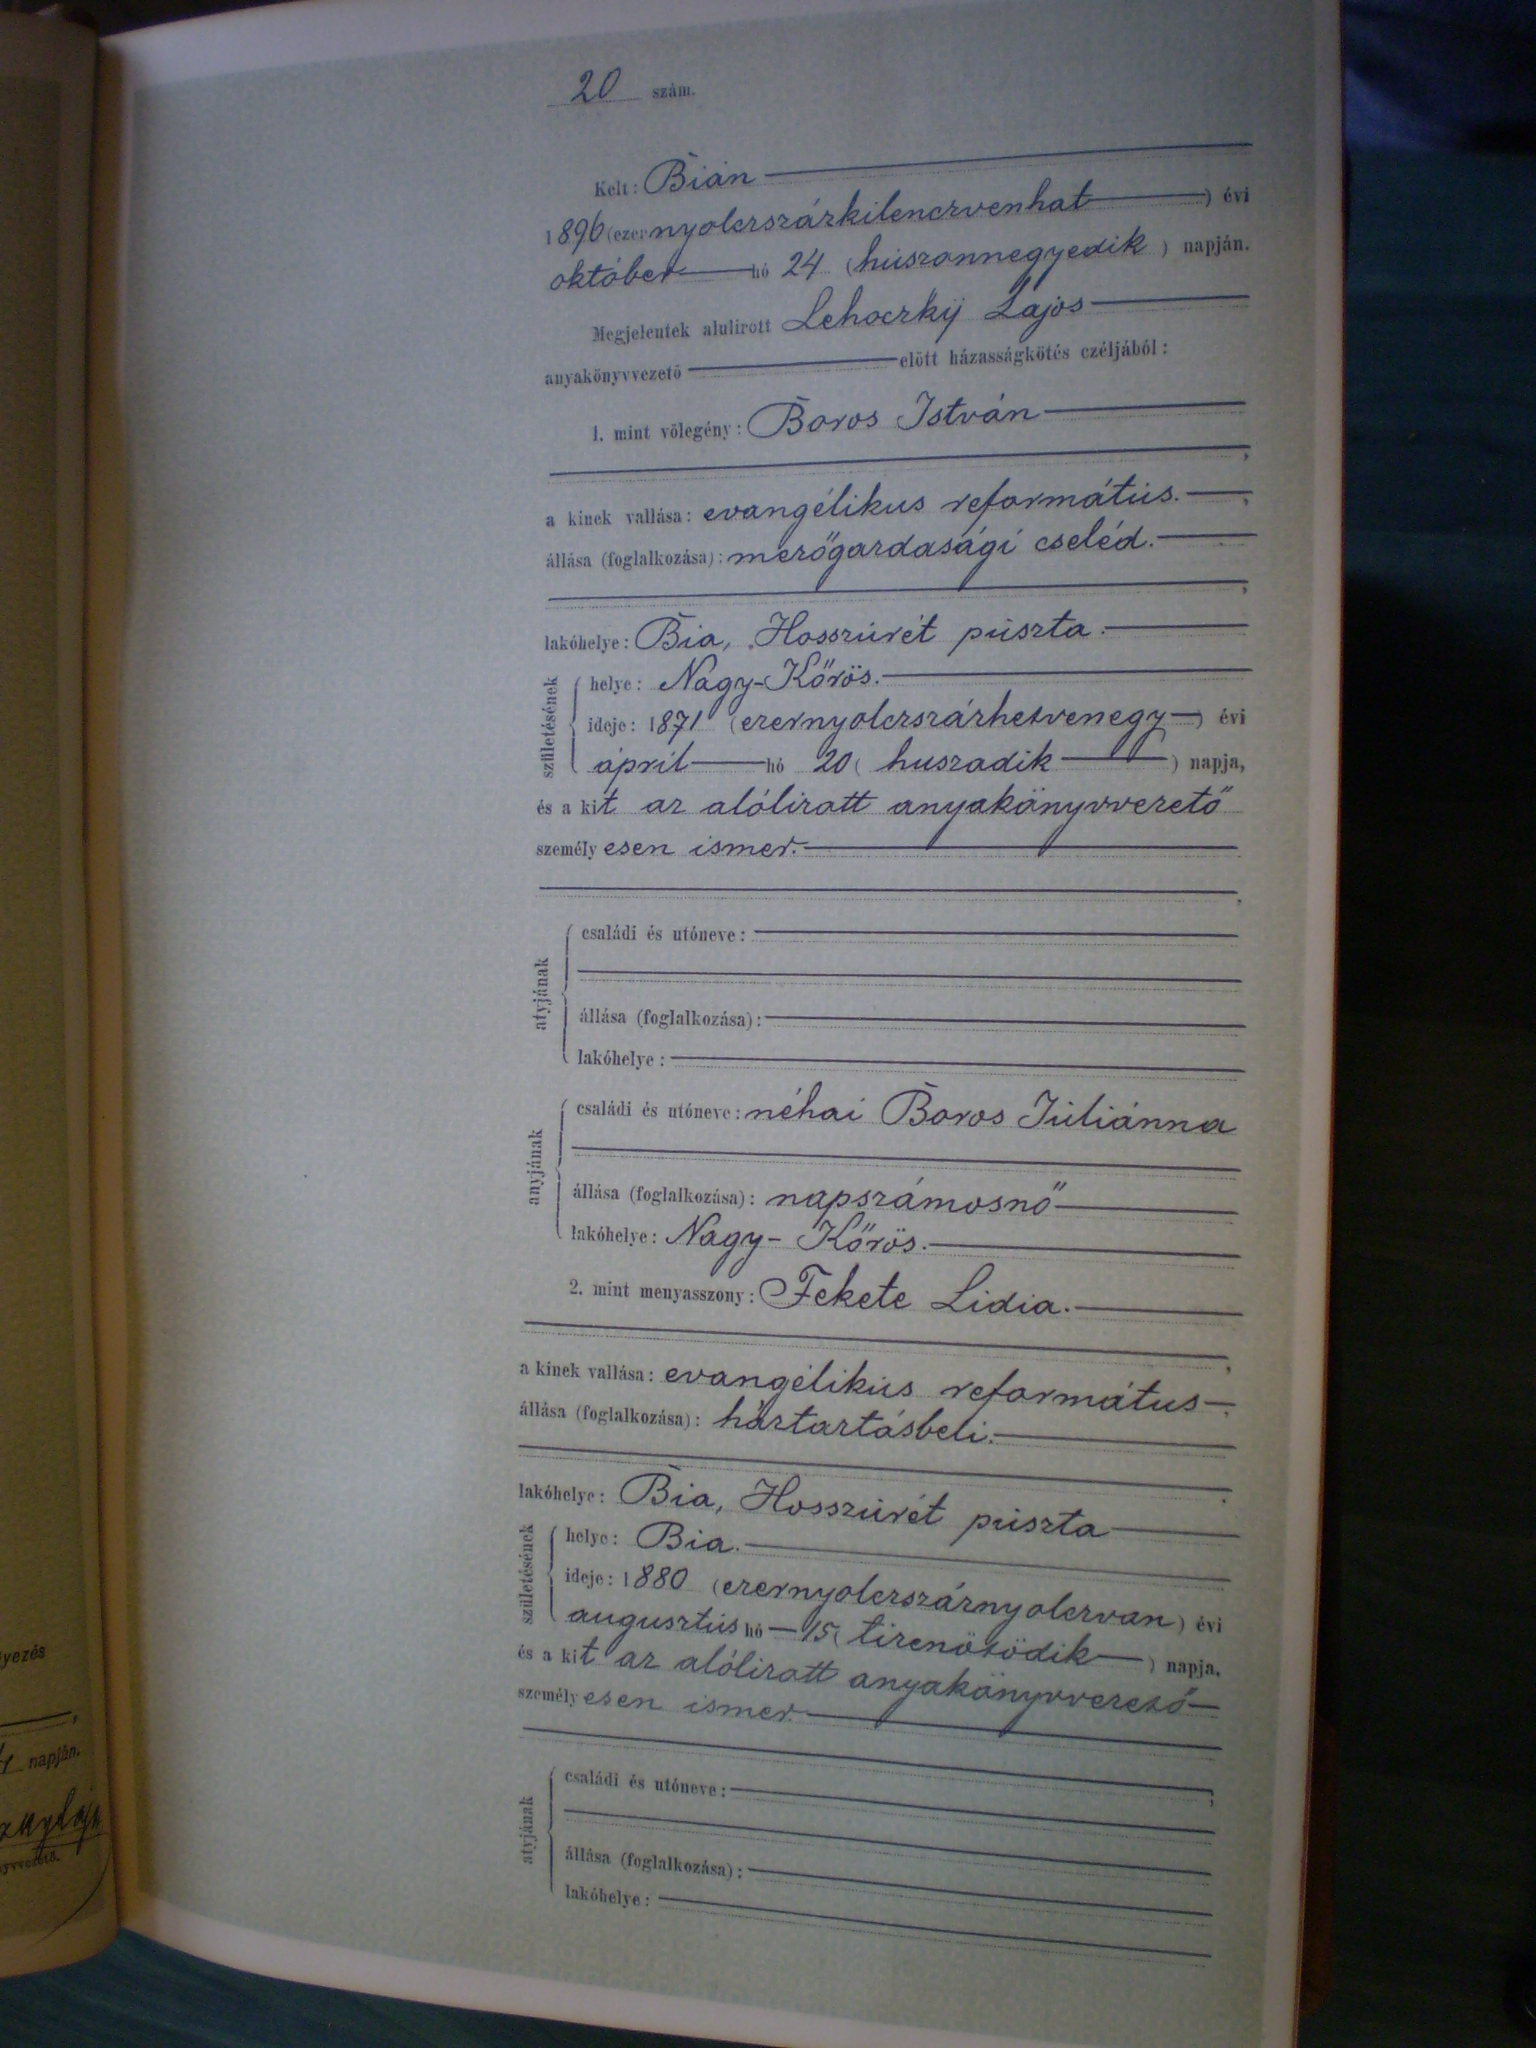 20 szám.
Kelt: Bián
1896 (ezernyolczszázkilenczvenhat) évi
október hó 24 (húszonnegyedik) napján.
Megjelentek alulirott Lehoczky Lajos
anyakönyvvezető előtt házasságkötés czéljából:
1. mint vőlegény: Boros István
,
a kinek vallása: evangélikus református.,
állása (foglalkozása): mezőgazdasági cseléd.
,
lakóhelye: Bia, Hosszúrét púszta.
születésének
helye: Nagy-Kőrös.
ideje: 1871 (ezernyolczszázhetvenegy) évi
ápril hó 20 (huszadik) napja,
és a kit az alólirott anyakönyvvezető
személyesen ismer.
,
atyjának
családi és utóneve:
állása (foglalkozása):
lakóhelye:
anyjának
családi és utóneve: néhai Boros Júliánna
állása (foglalkozása): napszámosnő
lakóhelye: Nagy-Kőrös.
2. mint menyasszony: Fekete Lidia.
,
a kinek vallása: evangélikús református
állása (foglalkozása): háztartásbeli.
lakóhelye: Bia, Hosszúrét púszta
születésének
helye: Bia.
ideje: 1880 (ezernyolczszáznyolczvan) évi
augusztús hó 15 (tizenötödik) napja,
és a kit az alólirott anyakönyvvezető
személyesen ismer.
;
atyjának
családi és utóneve:
állása (foglalkozása):
lakóhelye:
yezés
napján.